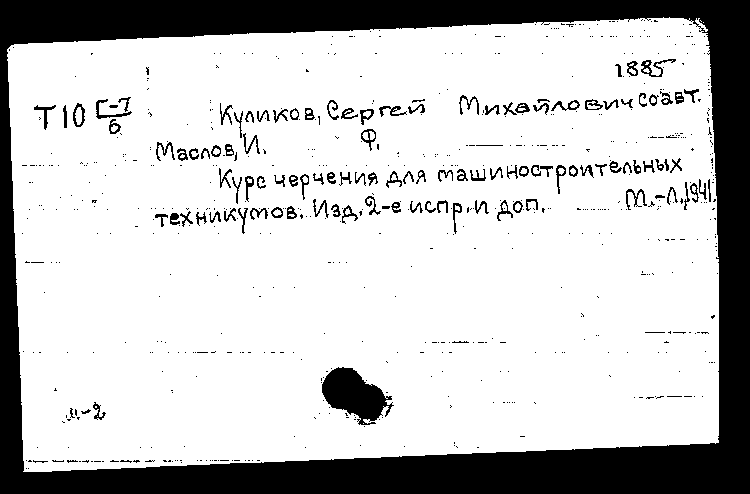 1885
Т10 Г-7/6 Куликов, Сергей Михайлович соавт.
Маслов, И. Ф.
Курс черчения для машиностроительных
техникумов. Изд. 2-е испр. и доп. М.-Л., 1941.
м-2